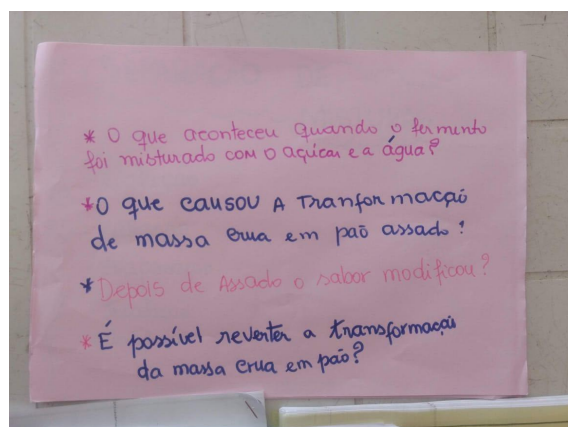 * O que aconteceu quando o fermento
foi misturado com o açúcar e a água?
* O que causou a Tranformação
de massa crua em pão assado?
* Depois de Assado o sabor modificou?
* É possível reverter a transformação
da massa crua em pão?